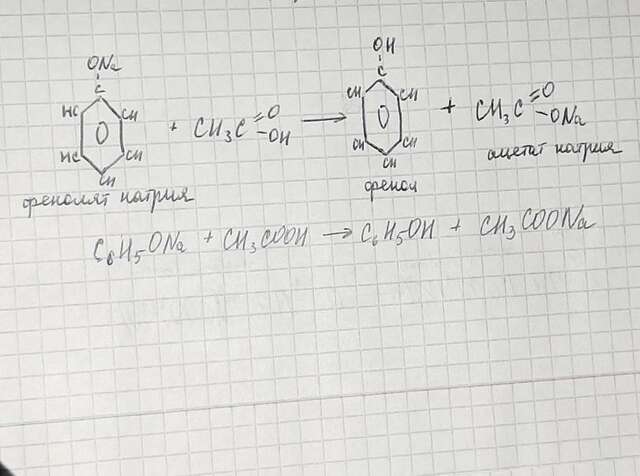 ONa OH
C C
HC CH CH CH
O + CH₃C =O –OH ⟶ O + CH₃C =O –ONa
HC CH CH CH
CH CH
фенолят натрия фенол ацетат натрия
C₆H₅ONa + CH₃COOH → C₆H₅OH + CH₃COONa